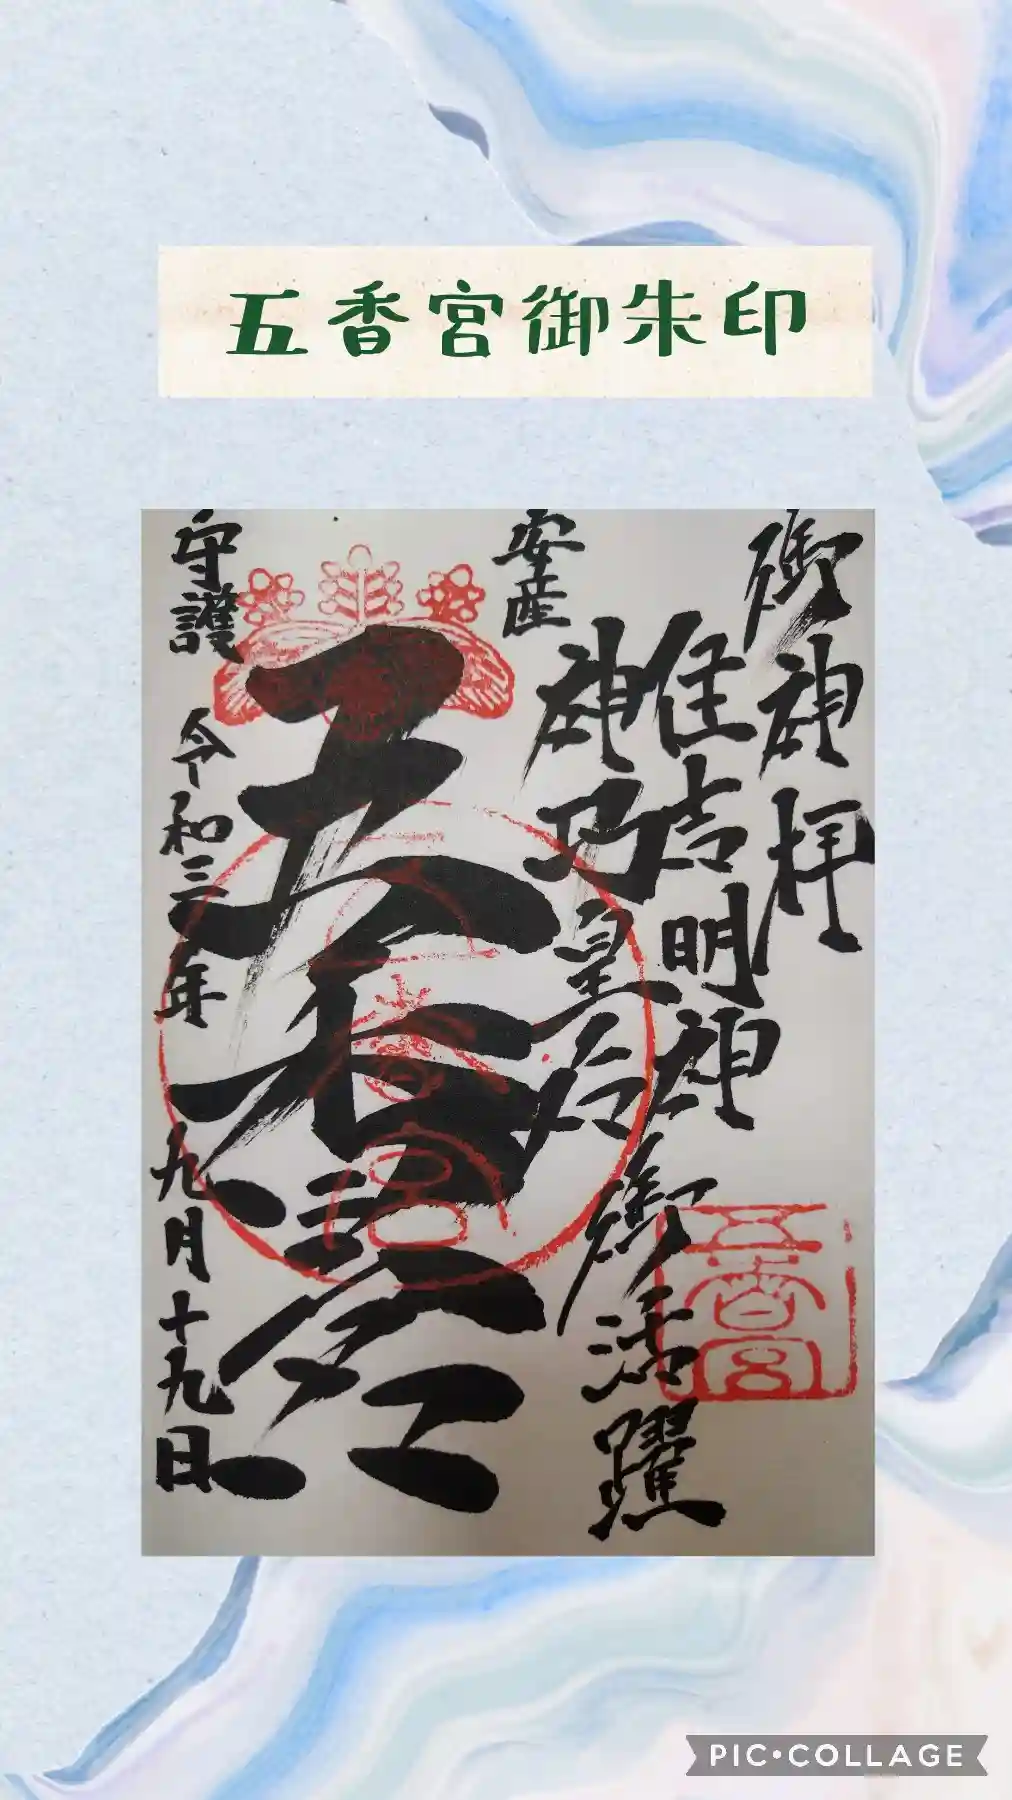 五香宮御朱印
御神拝
住吉明神
神乃皇后
御活躍
安産
守護
五香宮
令和三年
九月十九日
五香宮
PIC•COLLAGE